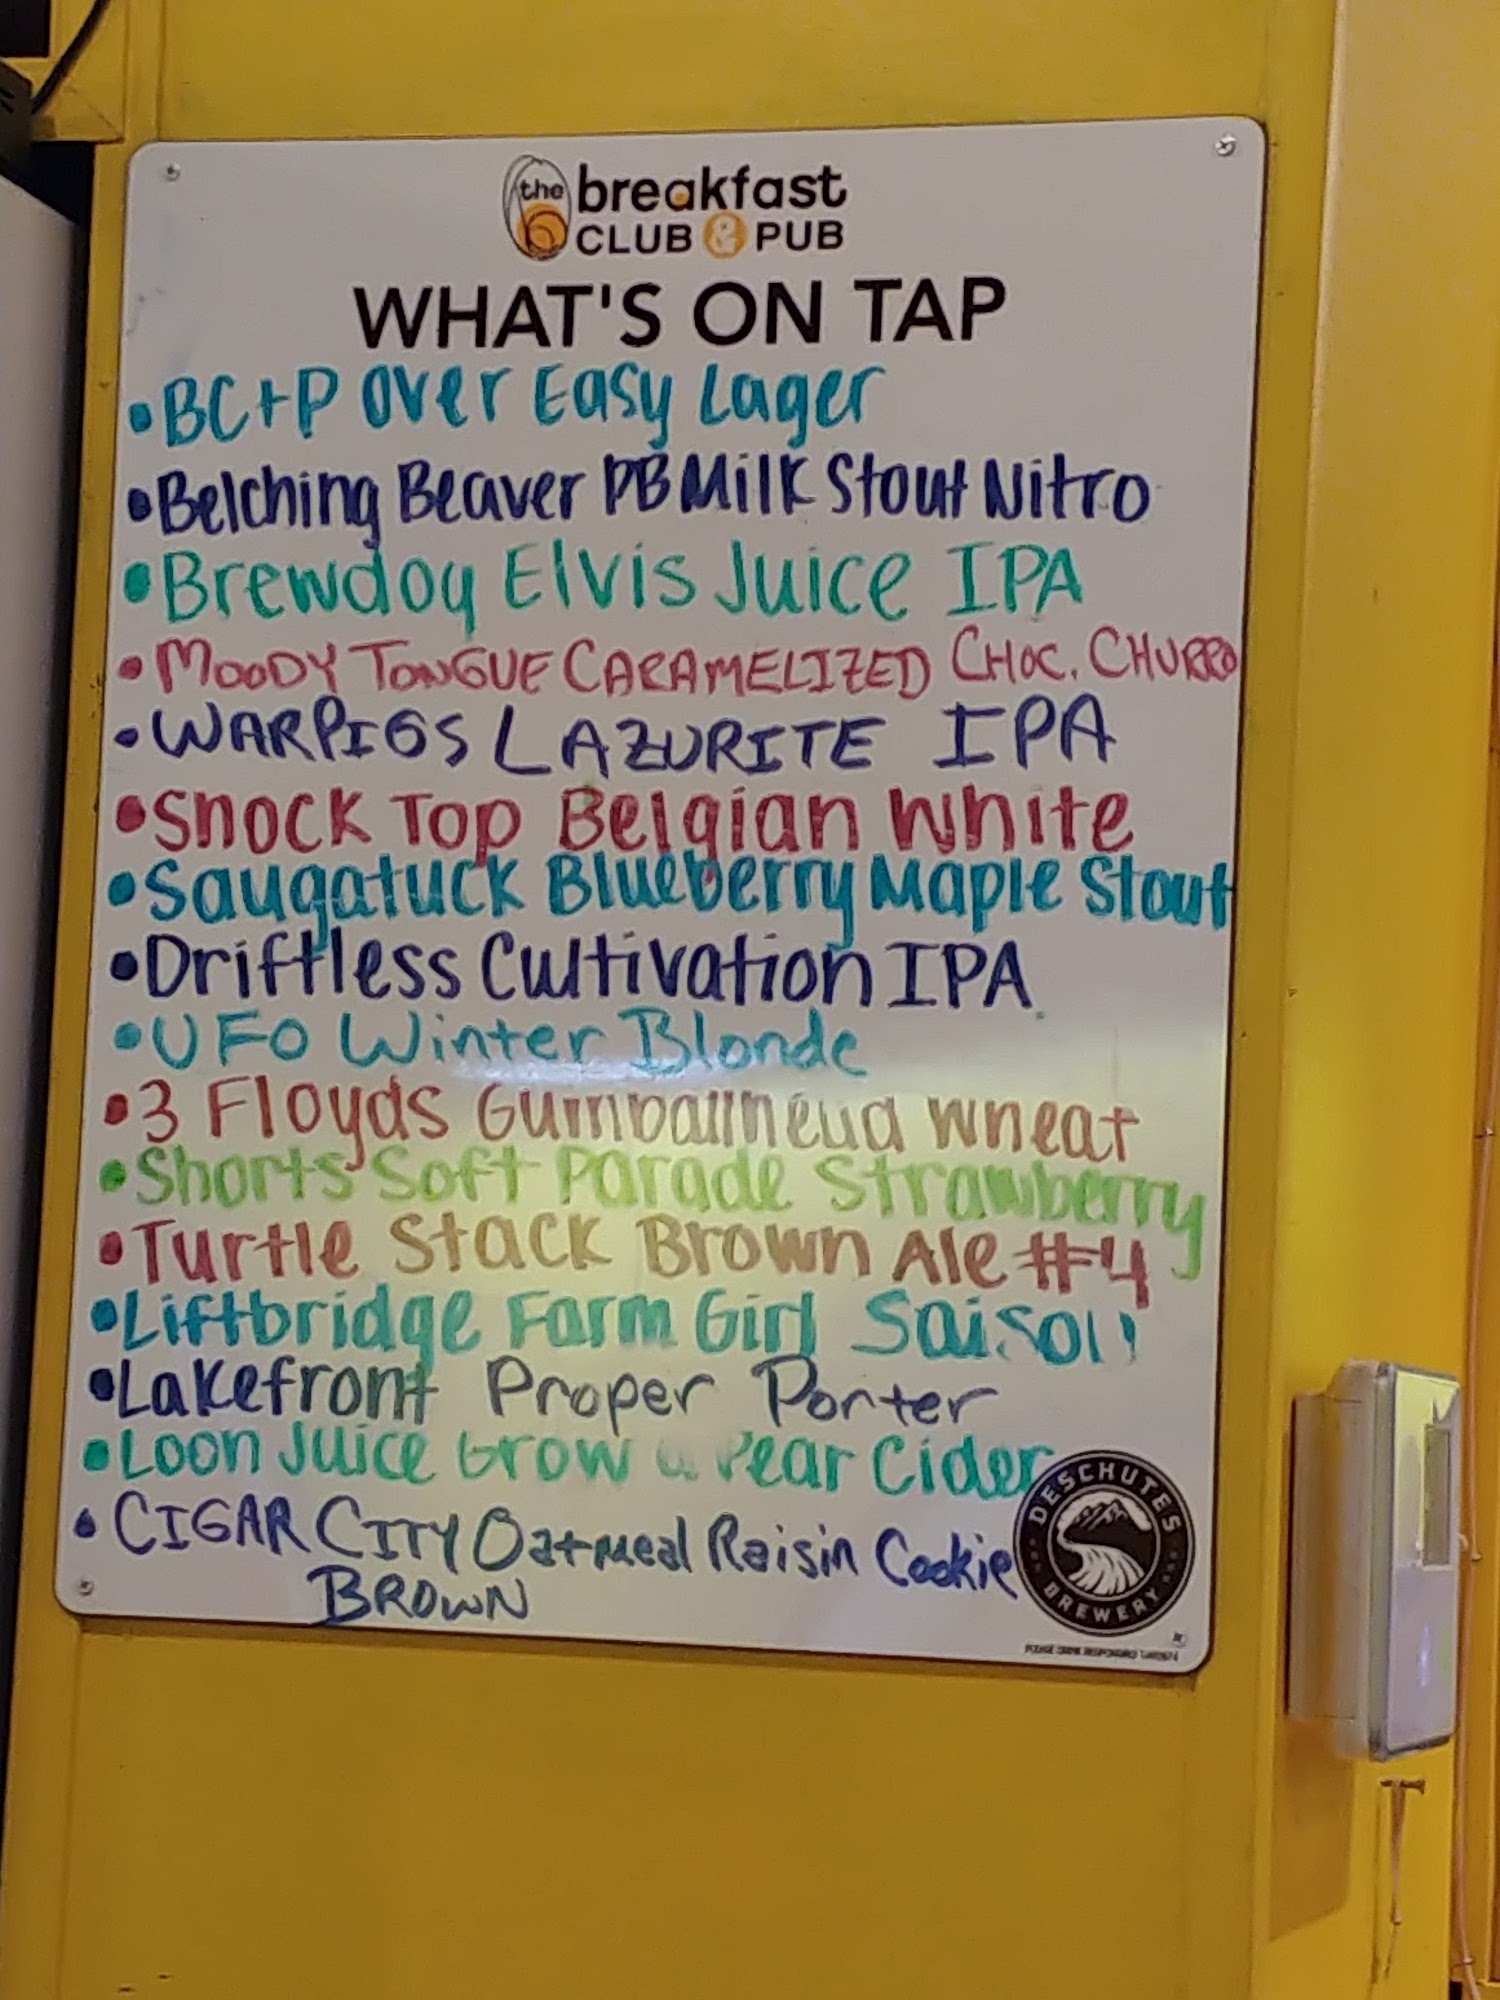 the breakfast
CLUB & PUB
WHAT'S ON TAP
• BC+P Over Easy Lager
• Belching Beaver PB Milk Stout Nitro
• Brewdog Elvis Juice IPA
• MOODY TONGUE CARAMELIZED CHOC. CHURRO
• WARPIGS LAZURITE IPA
• Snock Top Belgian White
• Saugatuck Blueberry Maple Stout
• Driftless Cultivation IPA
• UFO Winter Blonde
• 3 Floyds Gumballhead Wheat
• Shorts Soft Parade Strawberry
• Turtle Stack Brown Ale #4
• Liftbridge Farm Girl Saison
• Lakefront Proper Porter
• Loon Juice Grow a Pear Cider
• CIGAR CITY Oatmeal Raisin Cookie
BROWN
DESCHUTES
BREWERY